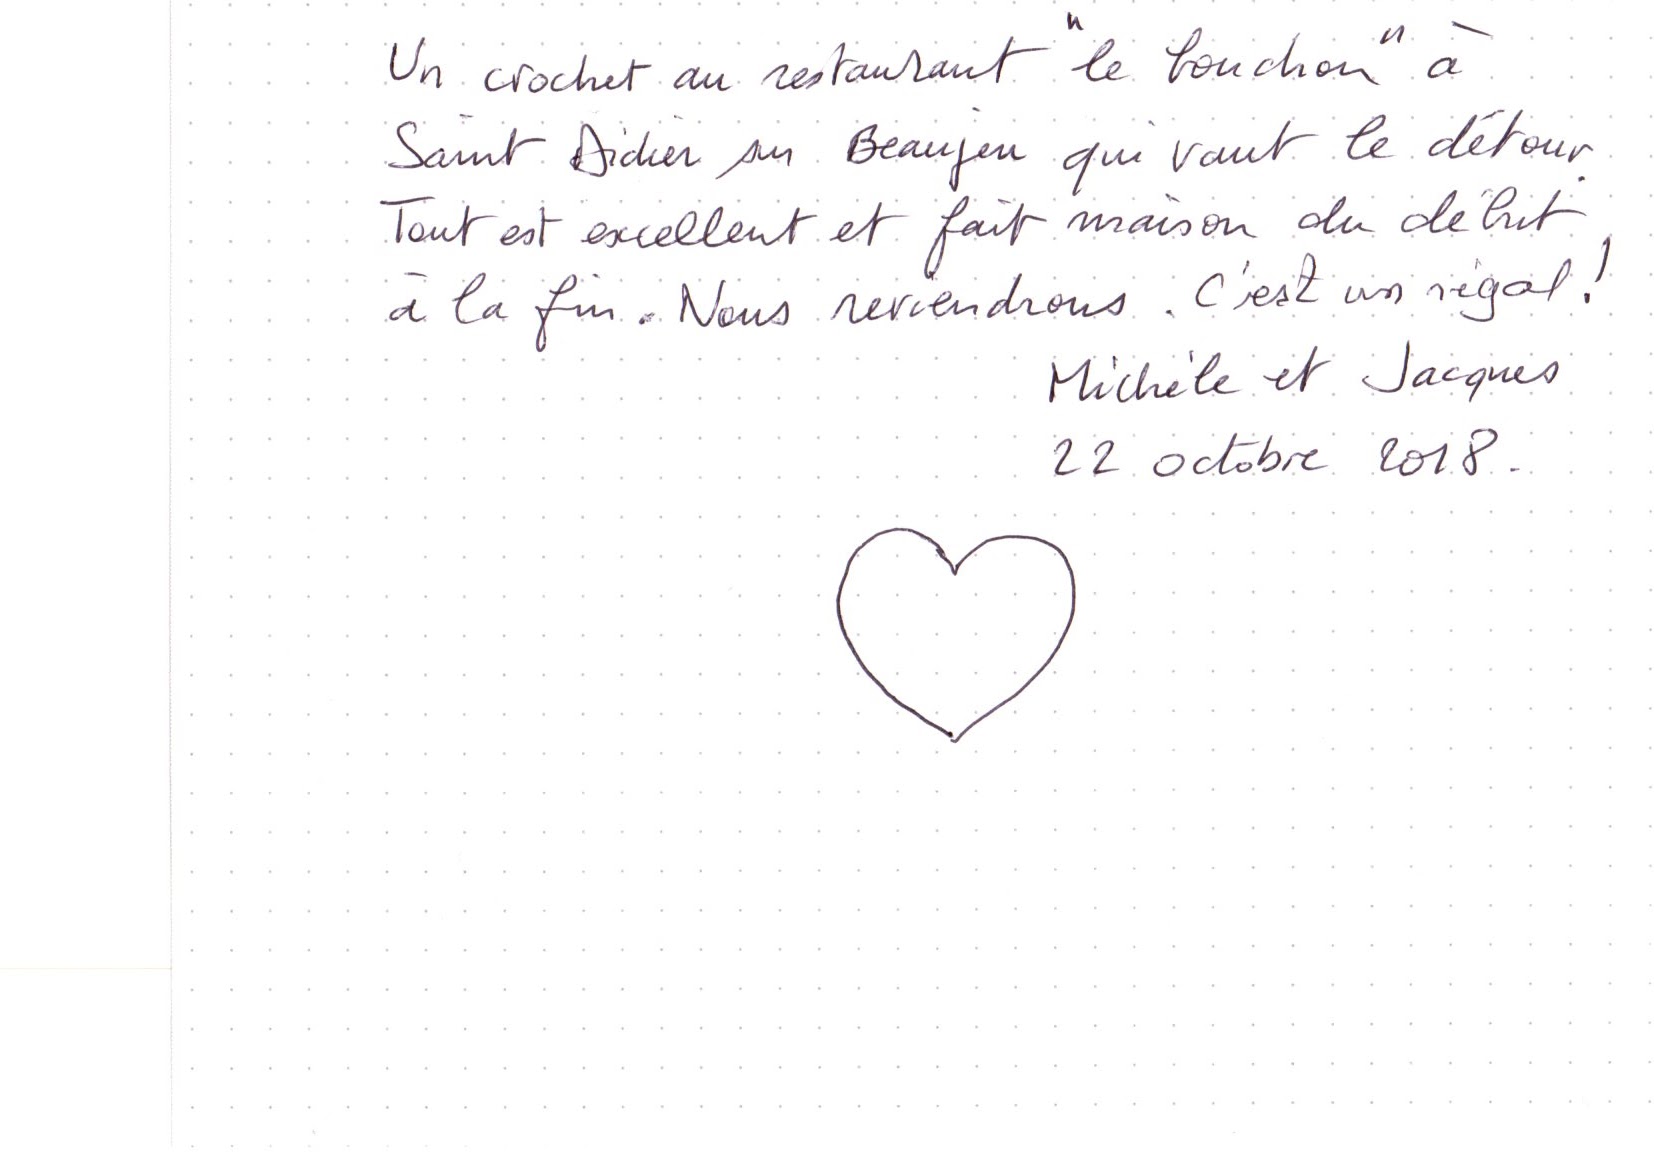 Un crochet au restaurant "le bouchon" à
Saint Didier sur Beaujeu qui vaut le détour.
Tout est excellent et fait maison du début
à la fin. Nous reviendrons. C'est un régal!
Michèle et Jacques
22 octobre 2018.